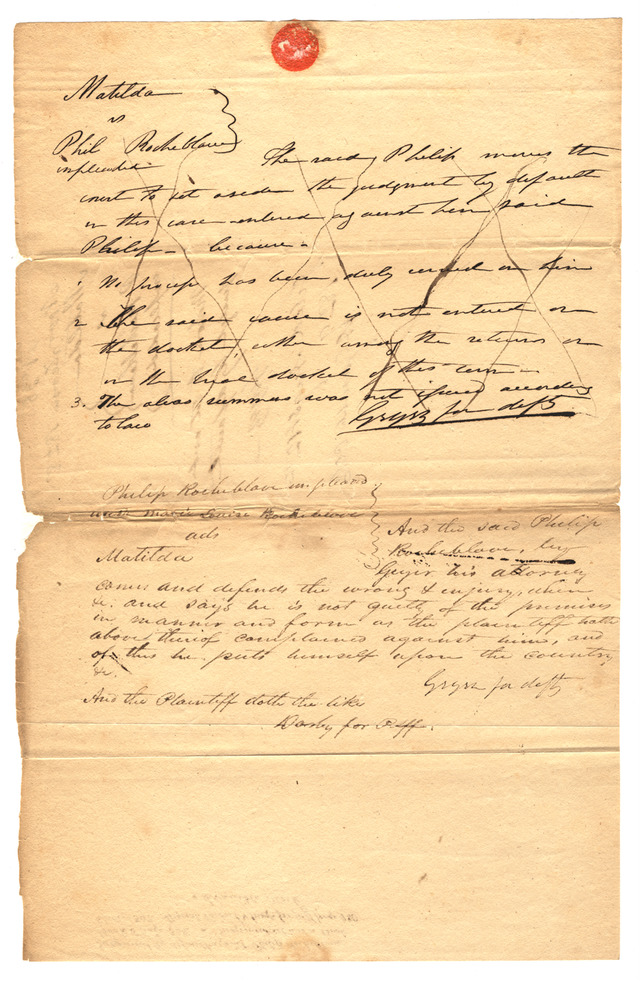 Matilda
vs
Phil Rocheblave
impleaded
The said Philip moves the
court to set aside the judgment by default
in this case entered against him said
Philip — because —
1 No process has been duly served on him
2 The said cause is not entered on
the docket, either among the returns or
on the trial docket of this term —
3. The alias summons was not issued according
to law
Geyer for deft
Philip Rocheblave impleaded
with Marie Louise Rocheblave
ads
Matilda
And the said Philip
Rocheblave, by
Geyer his attorney
comes and defends the wrong & injury, when
&c. and says he is not guilty of the premises
in manner and form as the plaintiff hath
above thereof complained against him, and
of this he puts himself upon the country
&c.
Geyer for deft
And the Plaintiff doth the like
Darby for Plff.